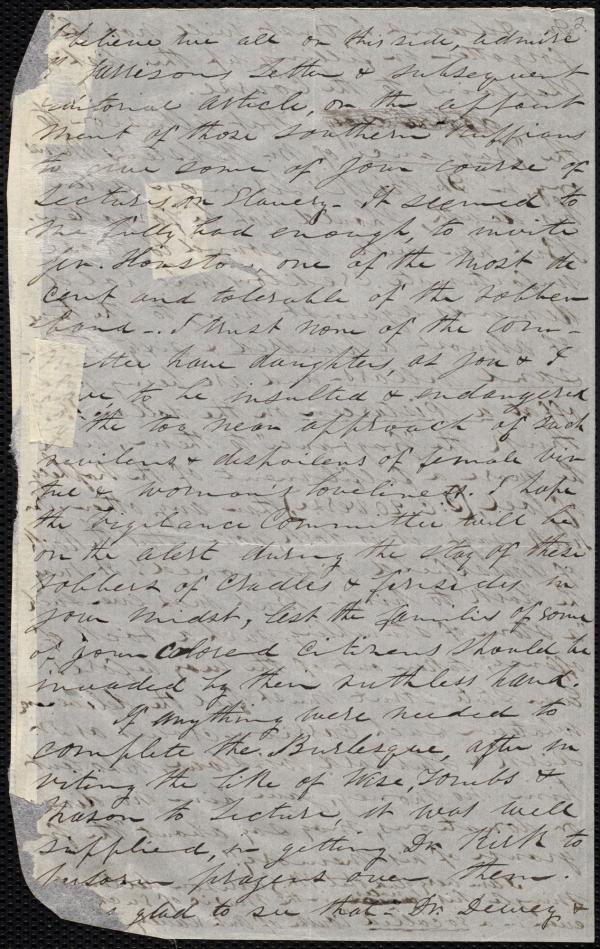 believe we all on this side, admire
Garrison's Letter & subsequent
editorial article, on the appoint
ment of those Southern ruffians
to give some of your course of
Lectures on Slavery. It seemed to
me bad enough, to invite
Gen. Houston, one of the most de
cent and tolerable of the robber
band. I trust none of the Com-
mittee have daughters, as you & I
have, to be insulted & endangered
by the too near approach of such
revilers & despoilers of female vir
tue & woman's loveliness. I hope
the Vigilance Committee will be
on the alert during the stay of these
robbers of Cradles & firesides in
your midst, lest the families of some
of your colored citizens should be
invaded by their ruthless hand.
If anything were needed to
complete the Burlesque, after in
viting the like of Wise, Tombs &
Mason to Lecture, it was well
supplied, in getting Dr. Kirk to
perform prayers over them.
glad to see that Dr. Dewey &